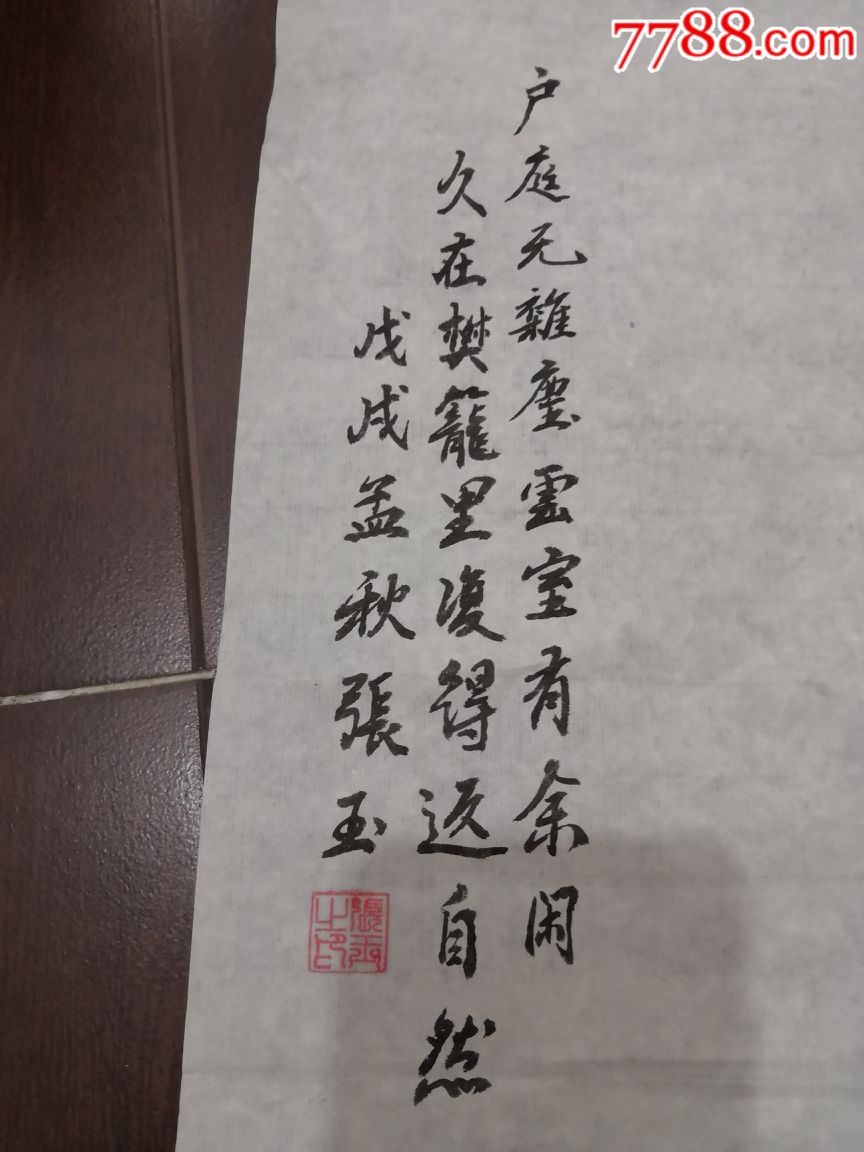 7788.com
户庭无雜塵雲室有余闲
久在樊籠里復得返自然
戊戌孟秋張玉
張玉之印